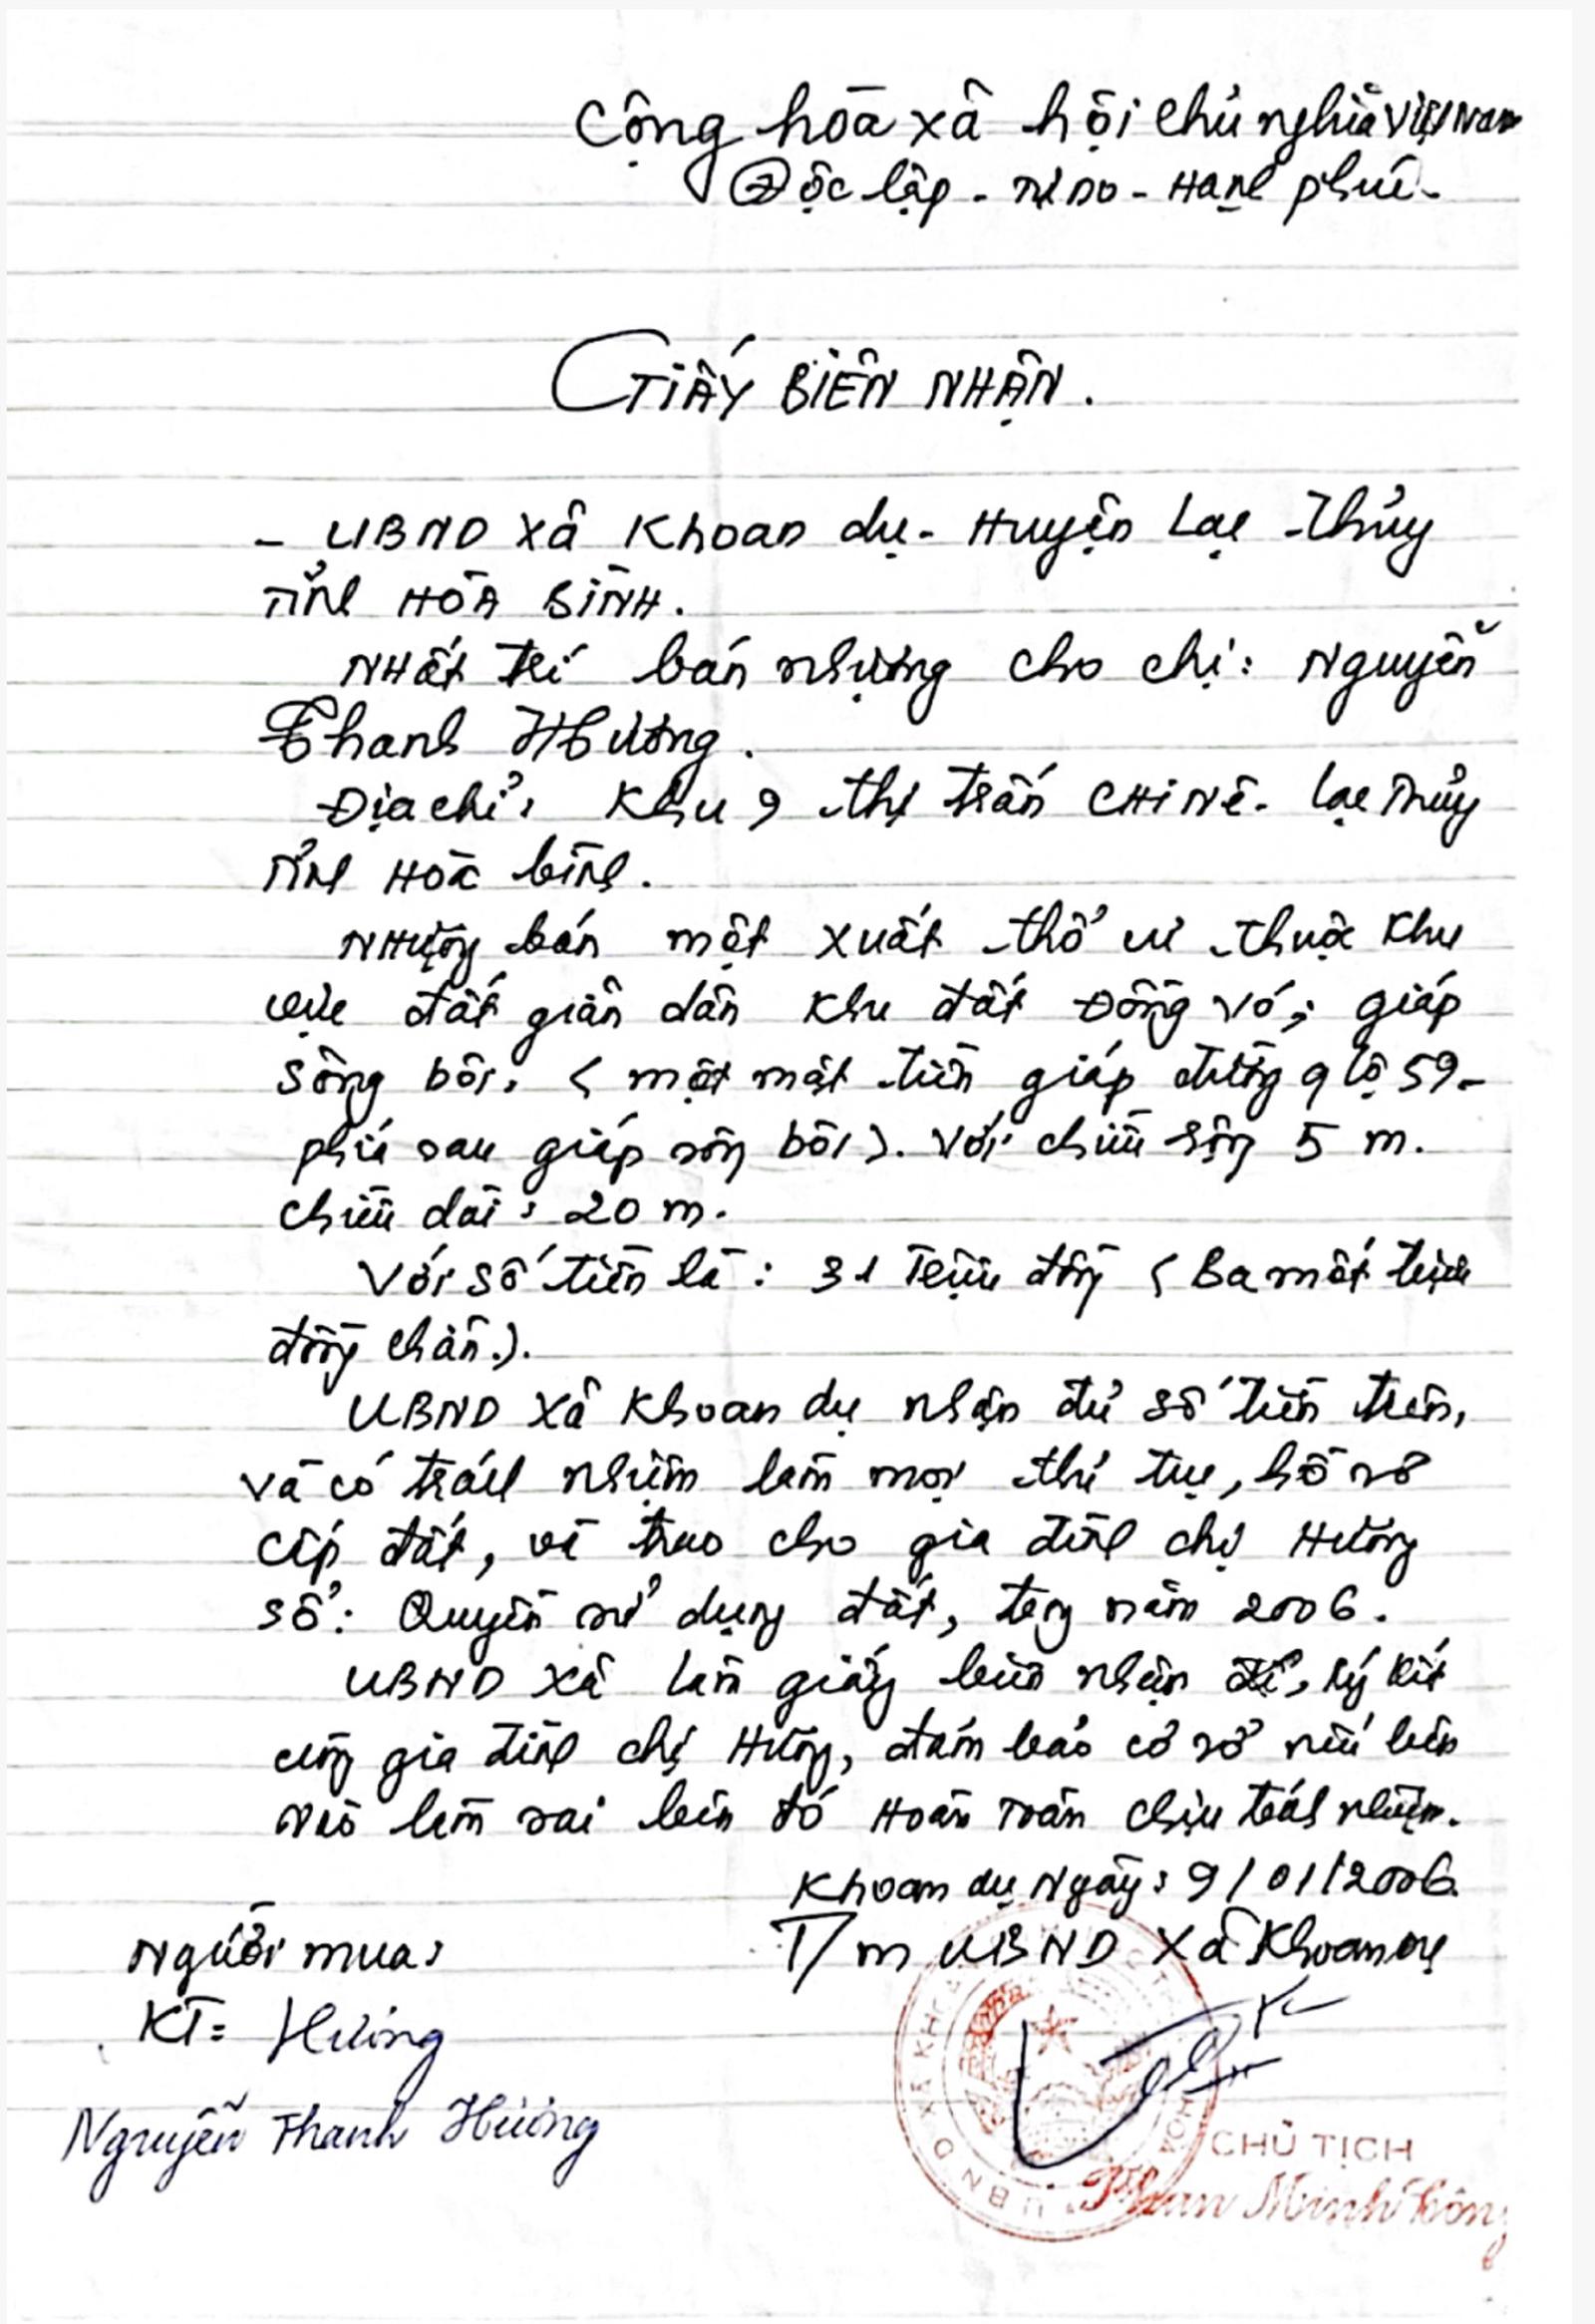 Cộng hòa xã hội chủ nghĩa Việt Nam
Độc lập - Tự do - Hạnh phúc -
GIẤY BIÊN NHẬN.
- UBND xã Khoan dụ - Huyện Lạc Thủy
Tỉnh HÒA BÌNH.
Nhất trí bán nhượng cho chị: Nguyễn
Thanh Hương.
Địa chỉ: Khu 9 thị trấn CHI NÊ - Lạc Thủy
Tỉnh Hòa bình.
Nhượng bán một xuất thổ cư thuộc khu
vực đất giãn dân khu đất Đồng Vó; giáp
Sông bôi, ( một mặt tiền giáp đường q lộ 59 -
phía sau giáp sông bôi ). Với chiều rộng 5 m.
chiều dài: 20 m.
Với số tiền là: 31 Triệu đồng ( Ba mốt triệu
đồng chẵn.).
UBND xã Khoan dụ nhận đủ số tiền trên,
và có trách nhiệm làm mọi thủ tục, hồ sơ
cấp đất, và trao cho gia đình chị Hương
sổ: Quyền sử dụng đất, trong năm 2006.
UBND xã làm giấy biên nhận để, ký kết
cùng gia đình chị Hương, đảm bảo cơ sở nếu bên
nào làm sai bên đó Hoàn Toàn chịu trách nhiệm.
Khoan dụ Ngày: 9/01/2006.
Người mua:
T/m UBND xã Khoan dụ
KT: Hương
Nguyễn Thanh Hương
CHỦ TỊCH
Phan Minh